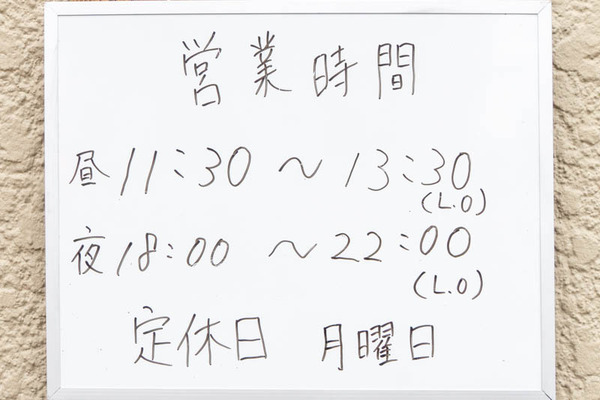 営業時間
昼 11:30 〜 13:30
(L.O)
夜 18:00 〜 22:00
(L.O)
定休日 月曜日